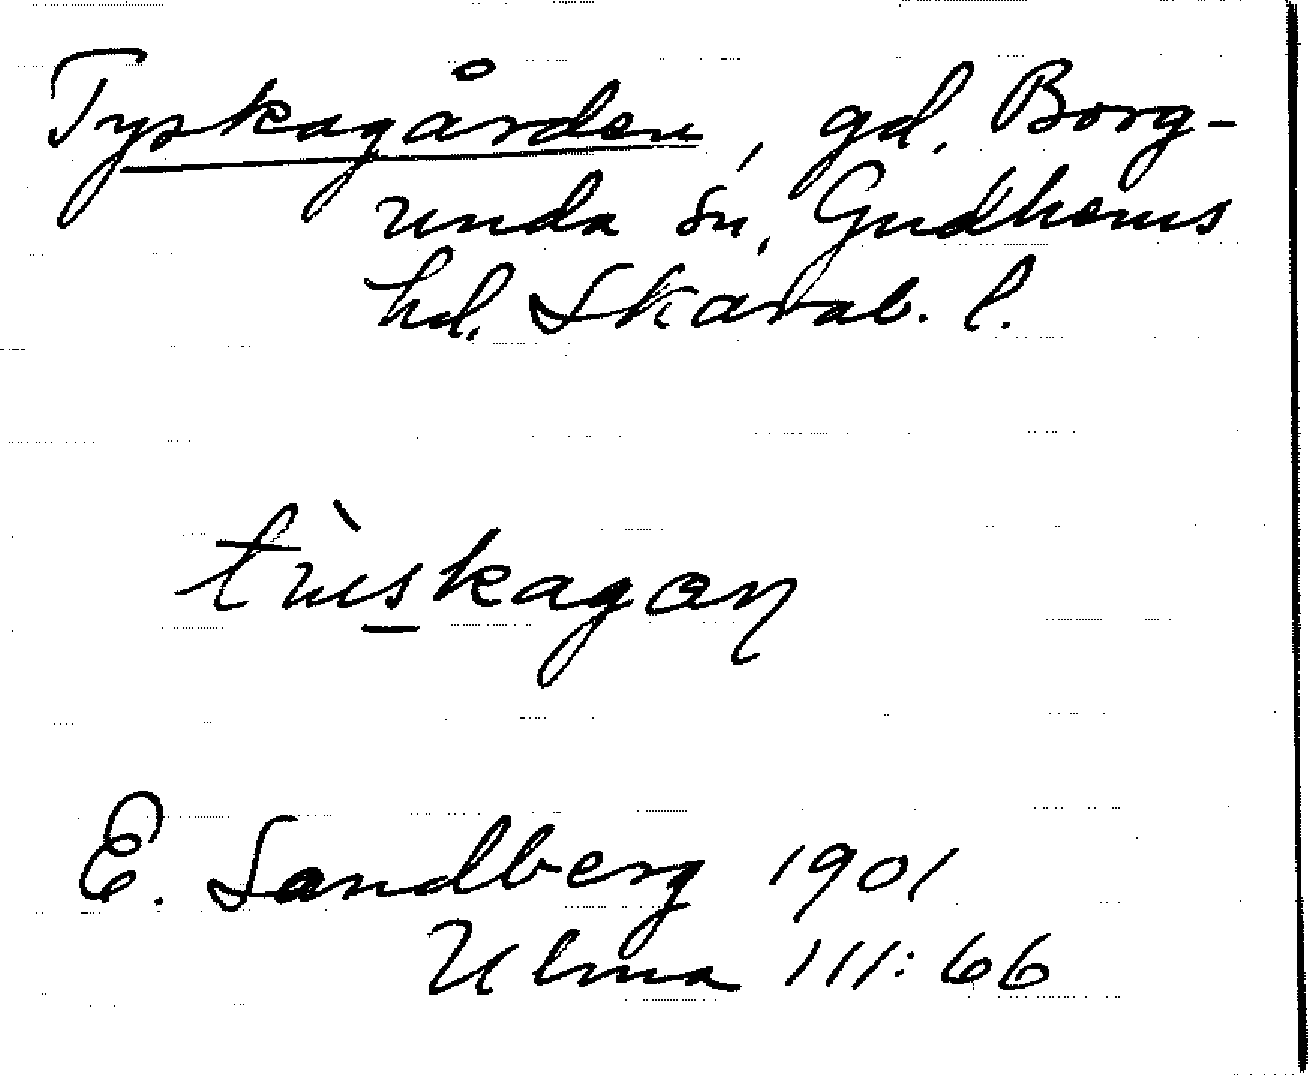 Tyskagården, gd. Borg-
unda sn, Gudhems
hd. Skarab. l.
E. Sandberg 1901
Ulma 111:66